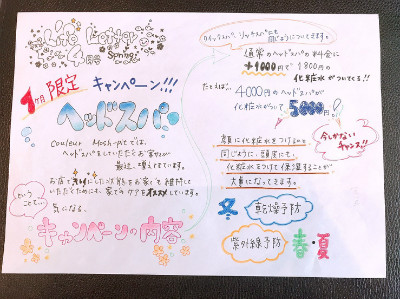 4月号
Spring
1ヶ月限定
キャンペーン!!!
ヘッドスパ
Couleur Mosh-pitでは、
ヘッドスパをしていただくお客様が
最近、増えてます。
お店でキレイにした頭皮をお家でも維持して
いただくためには、家でのケアをオススメしています。
ということで、
気になる、
キャンペーンの内容
クイックスパ、リッチスパにも
同じようについてきます。
通常のヘッドスパの料金に
+1000円で1800円の
化粧水がついてくる!!
たとえば…
4000円のヘッドスパが
化粧水がついて
5000円!
今しかない
チャンス!!
顔に化粧水をつけるのと
同じように、頭皮にも
化粧水をつけて保湿することが
大事になってきます。
冬 乾燥予防
紫外線予防 春・夏